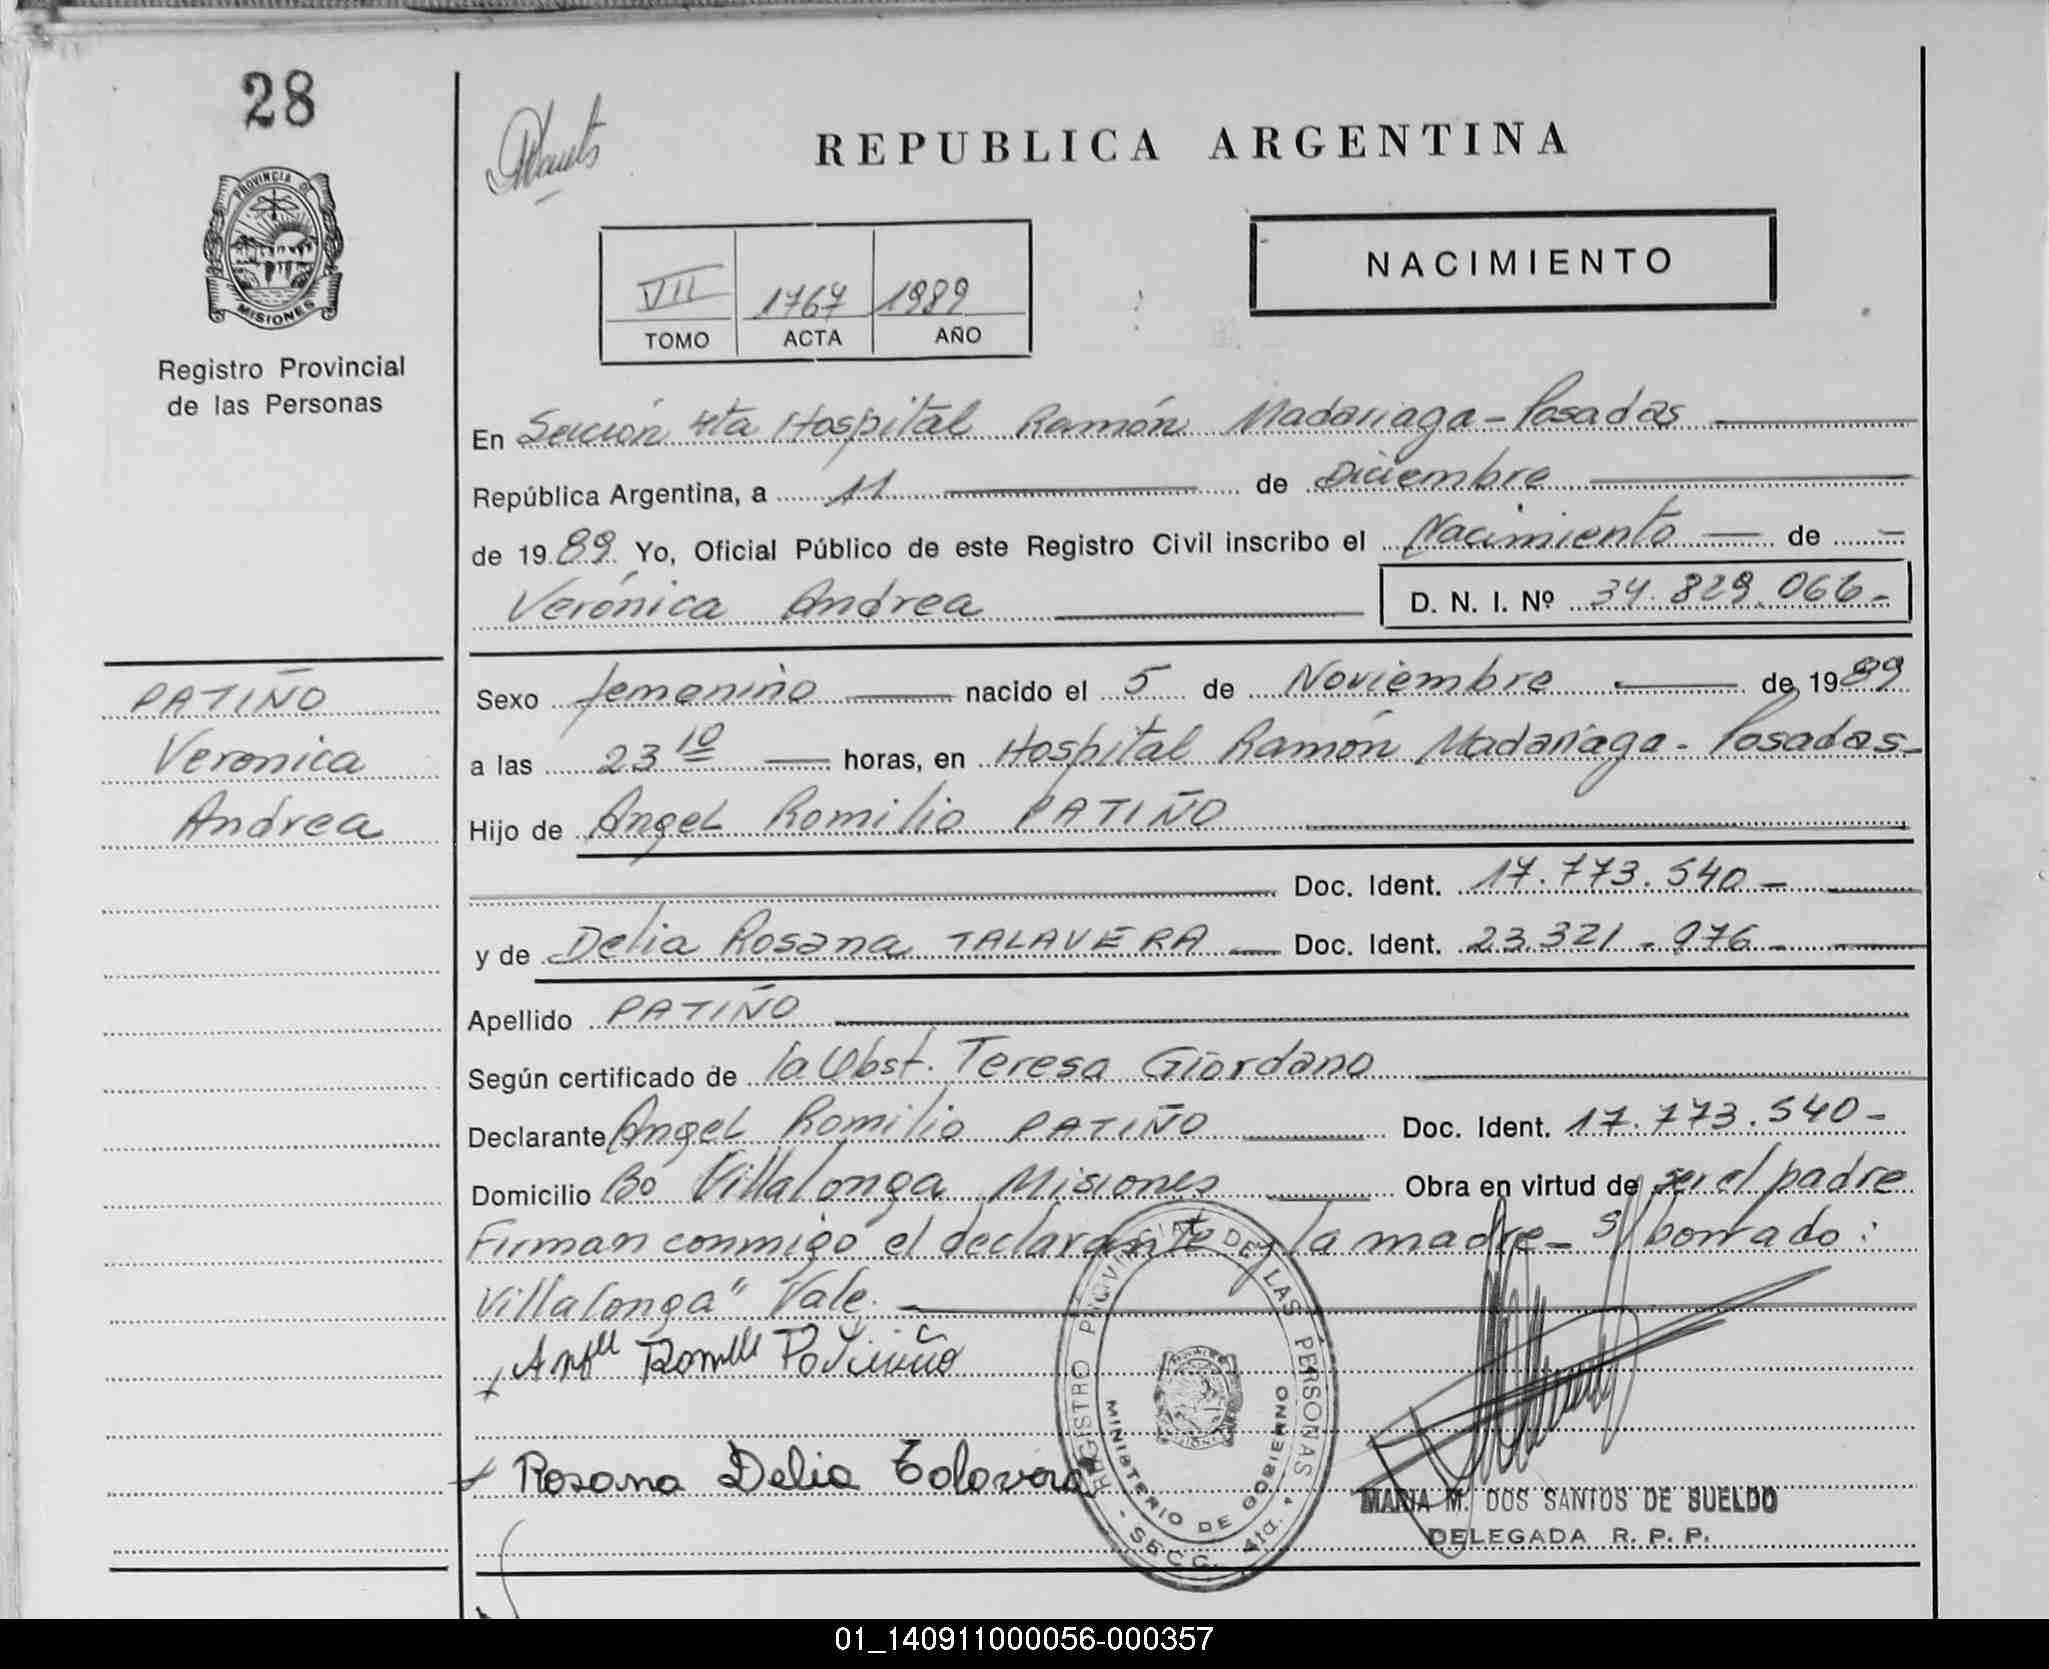 28
REPUBLICA ARGENTINA
PROVINCIA DE
MISIONES
NACIMIENTO
VII 1767 1989
TOMO ACTA AÑO
Registro Provincial
de las Personas
En Sección 4ta Hospital Ramón Madariaga - Posadas
República Argentina, a 11 de Diciembre
de 1989. Yo, Oficial Público de este Registro Civil inscribo el Nacimiento de
Verónica Andrea D. N. I. Nº 34.829.066-
PATIÑO
Veronica
Andrea
Sexo femenino nacido el 5 de Noviembre de 1989
a las 23 10 horas, en Hospital Ramón Madariaga - Posadas-
Hijo de Angel Romilio PATIÑO
Doc. Ident. 17.773.540-
y de Delia Rosana TALAVERA Doc. Ident. 23.321.976-
Apellido PATIÑO
Según certificado de la Obst. Teresa Giordano
Declarante Angel Romilio PATIÑO Doc. Ident. 17.773.540-
Domicilio Bo Villalonga Misiones Obra en virtud de ser el padre
Firman conmigo el declarante y la madre - s/borrado:
Villalonga" Vale.
Rosana Delia Talavera
REGISTRO PROVINCIAL DE LAS PERSONAS
MINISTERIO DE GOBIERNO
- SECC. 4ta. -
MARIA M. DOS SANTOS DE SUELDO
DELEGADA R. P. P.
01_140911000056-000357